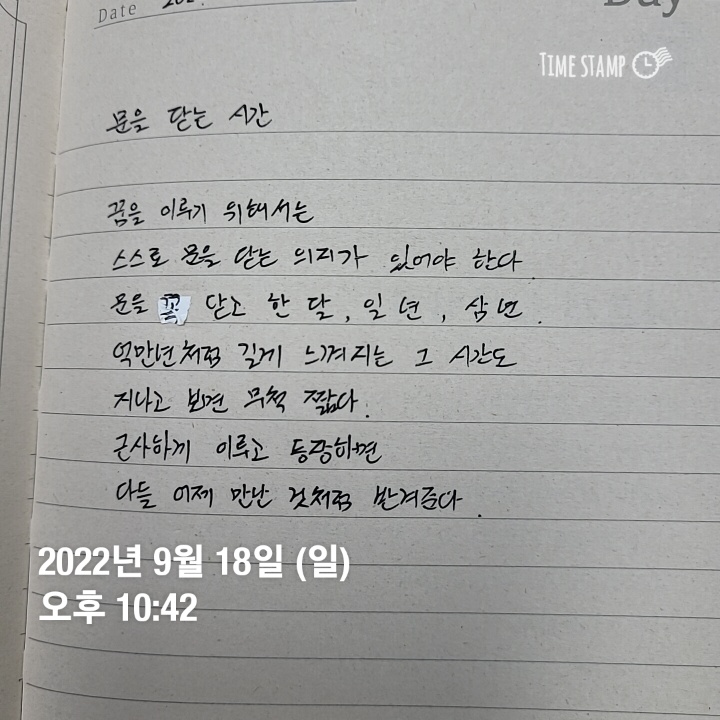 Date 202
Day
TIME STAMP
문을 닫는 시간
꿈을 이루기 위해서는
스스로 문을 닫는 의지가 있어야 한다.
문을 꼭 닫고 한 달, 일 년, 삼 년.
억만년처럼 길게 느껴지는 그 시간도
지나고 보면 무척 짧다.
근사하게 이루고 등장하면
다들 어제 만난 것처럼 반겨준다.
2022년 9월 18일 (일)
오후 10:42